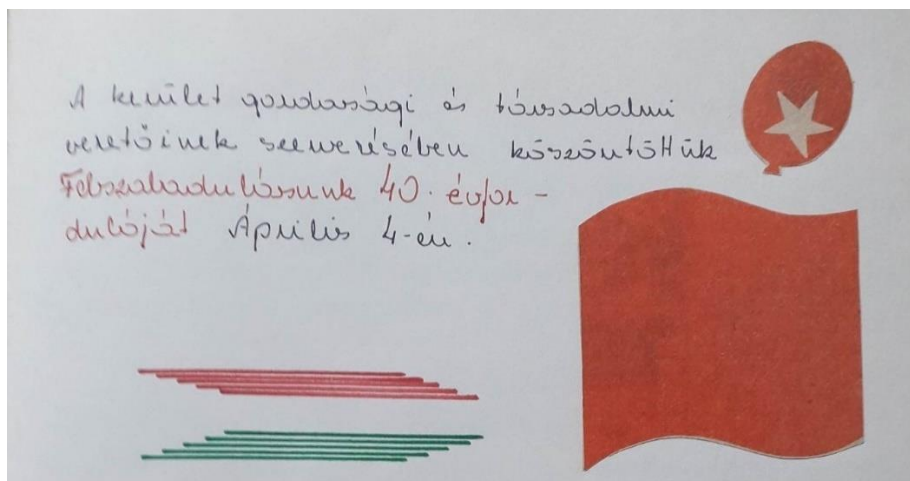 A kerület gazdasági és társadalmi
vezetőinek szervezésében köszöntöttük
Felszabadulásunk 40. évfor-
dulóját Április 4-én.